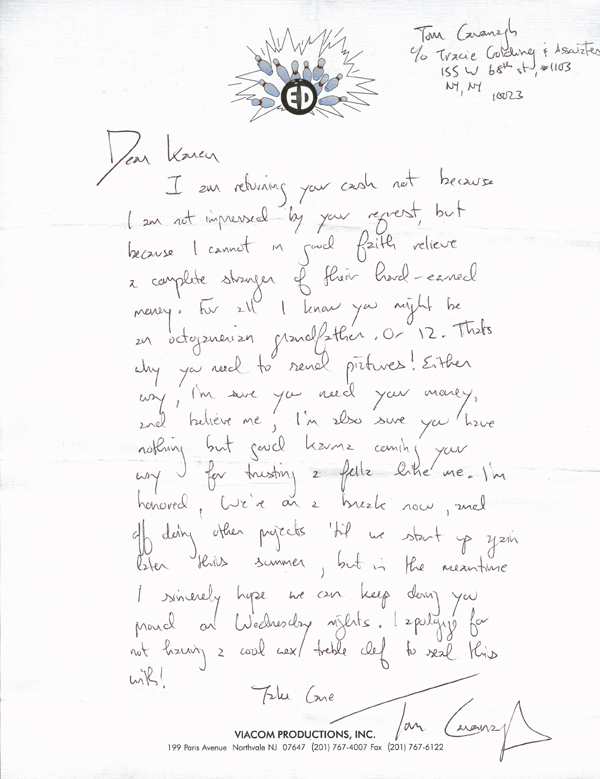 Tom Cavanagh
c/o Tracie Golding & Assoiztes
155 W 68th st, #1103
NY, NY
10023
ED
Dear Karen
I am returning your cash not because
I am not impressed by your request, but
because I cannot in good faith relieve
a complete stranger of their hard-earned
money. For all I know you might be
an octogenerian grandfather. Or 12. Thats
why you need to send pictures! Either
way, I'm sure you need your money,
and believe me, I'm also sure you have
nothing but good karma coming your
way for trusting a fella like me. I'm
honored, We're on a break now, and
off doing other projects 'til we start up again
later this summer, but in the meantime
I sincerely hope we can keep doing you
proud on Wednesday nights. I apologize for
not having a cool wax treble clef to seal this
with!
Take Care
Tom Cavanagh
VIACOM PRODUCTIONS, INC.
199 Paris Avenue Northvale NJ 07647 (201) 767-4007 Fax (201) 767-6122